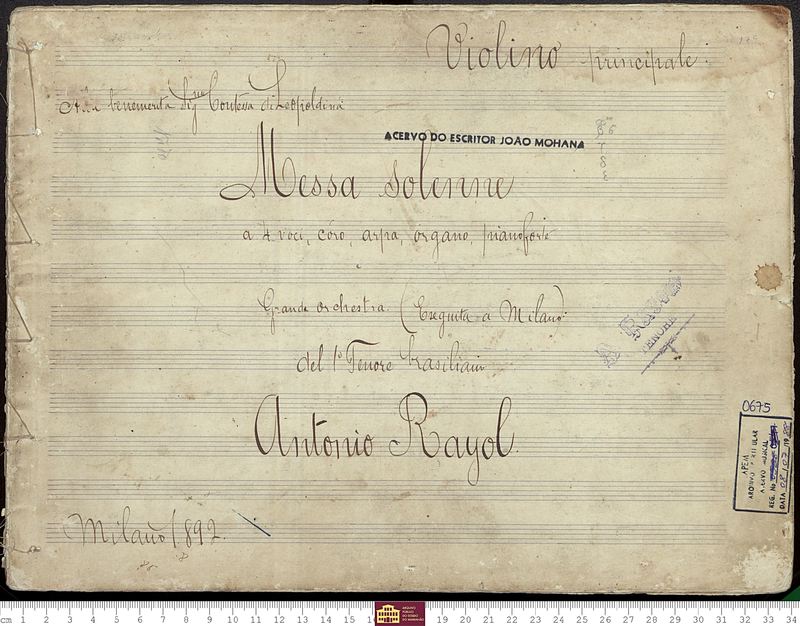 Violino principale.
Alla benemerita Sig.na Contessa di Leopoldina
ACERVO DO ESCRITOR JOÃO MOHANA
Messa Solenne
a 4 voci, côro, arpa, organo, pianoforte
Grande orchestra. (Eseguita a Milano).
del 1º Tenore brasiliano
Antonio Rayol
A. RAYOL
TENORE
Milano 1892.
0675
APEM
ARQUIVO PARTICULAR
ACERVO MUSICAL
REG. No
DATA 08/07/19
cm 1 2 3 4 5 6 7 8 9 10 11 12 13 14 15 ARQUIVO PÚBLICO DO ESTADO DO MARANHÃO 18 19 20 21 22 23 24 25 26 27 28 29 30 31 32 33 34